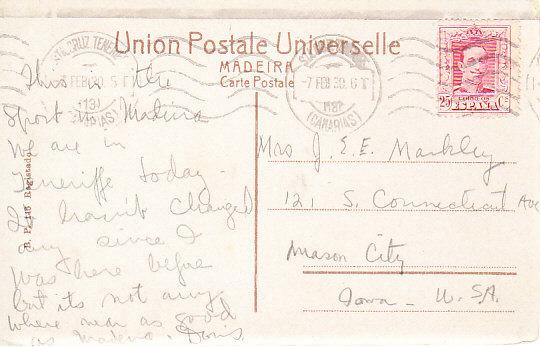 Union Postale Universelle
MADEIRA
Carte Postale
STA CRUZ TENERIFE
7 FEB 30. 5 T
(CANARIAS)
-7 FEB 30. 6 T
(CANARIAS)
25 C.
ESPAÑA
B. P. Registado
This is the
Spot in Madeira
We are in
Teneriffe today.
It hasn't changed
any since I
was here before
but its not any
where near as good
as Madeira. Doris.
Mrs J. E. Markley
121 S. Connecticut Ave
Mason City
Iowa - U.S.A.